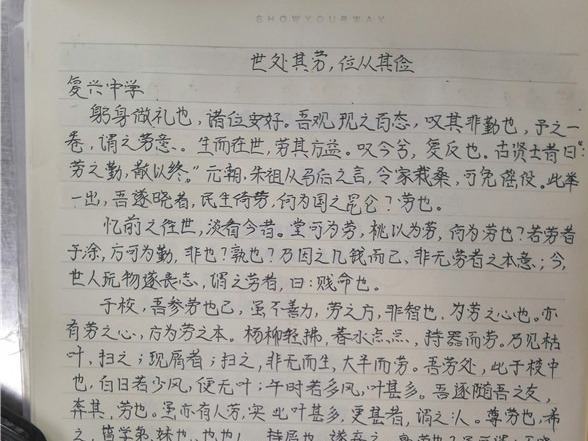 SHOWYOURWAY
世处其劳，位从其俭
复兴中学
躬身做礼也，诸位安好。吾观现之百态，叹其非勤也，予之一
卷，谓之劳意。生而在世，劳其方益。叹今兮，复反也。古贤士者曰：“
劳之勤，献以终。”元朝，朱祖从马后之言，令家栽桑，可免徭役。此举
一出，吾遂晓者，民生倚劳，何为国之昆仑？劳也。
忆前之往世，淡看今昔。堂可为劳，桃以为劳，何为劳也？若劳者
于涂，方可为勤，非也？孰也？乃因之几钱而已，非无劳者之本意；今
世人玩物遂丧志，谓之劳者，曰：贱命也。
于校，吾参劳也已，虽不善力，劳之方，非智也，为劳之心也。亦
有劳之心，方为劳之本。杨柳轻拂，春水点点，持器而劳。乃见枯
叶，扫之；现屑者；扫之，非无而生，大半而劳。吾劳处，此于校中
也，白日若少风，便无叶；午时若多风，叶甚多。吾遂随吾之友，
奔其，劳也。虽亦有人劳，实此叶甚多，更甚者，谓之人。尊劳也，希